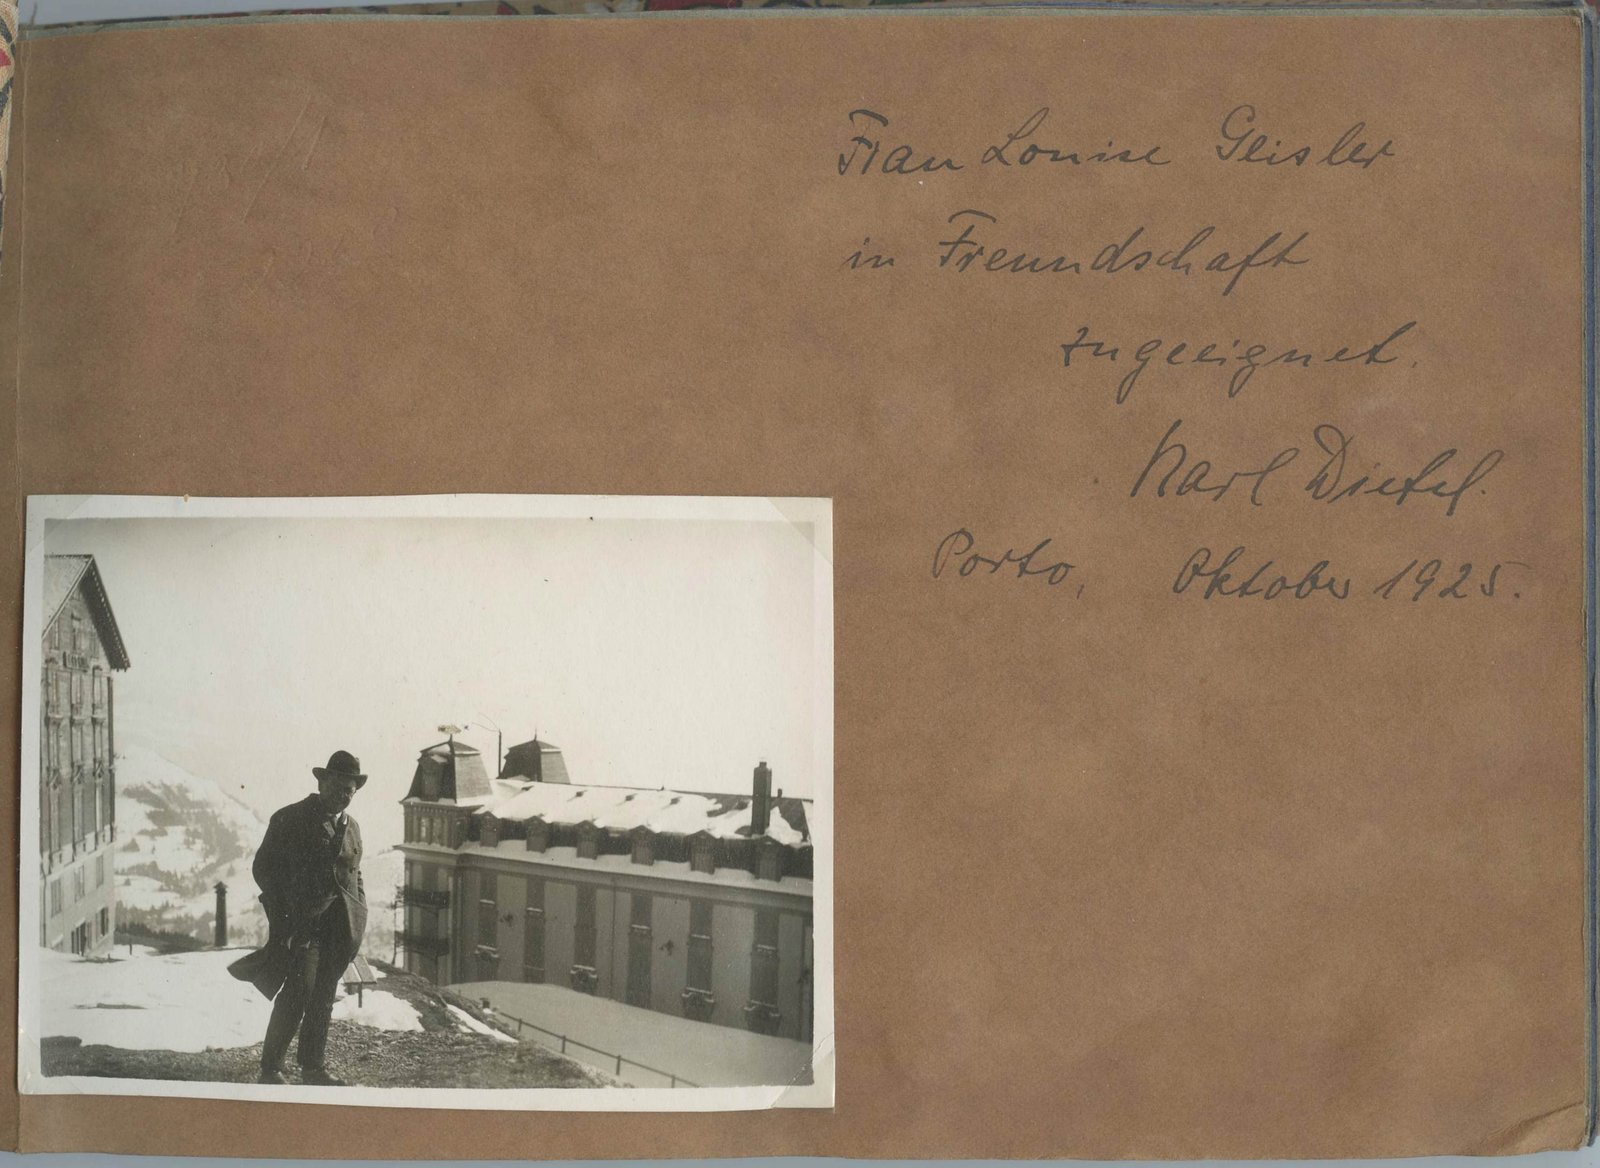 Frau Louise Geisler
in Freundschaft
zugeeignet.
Karl Dietel.
Porto, Oktober 1925.